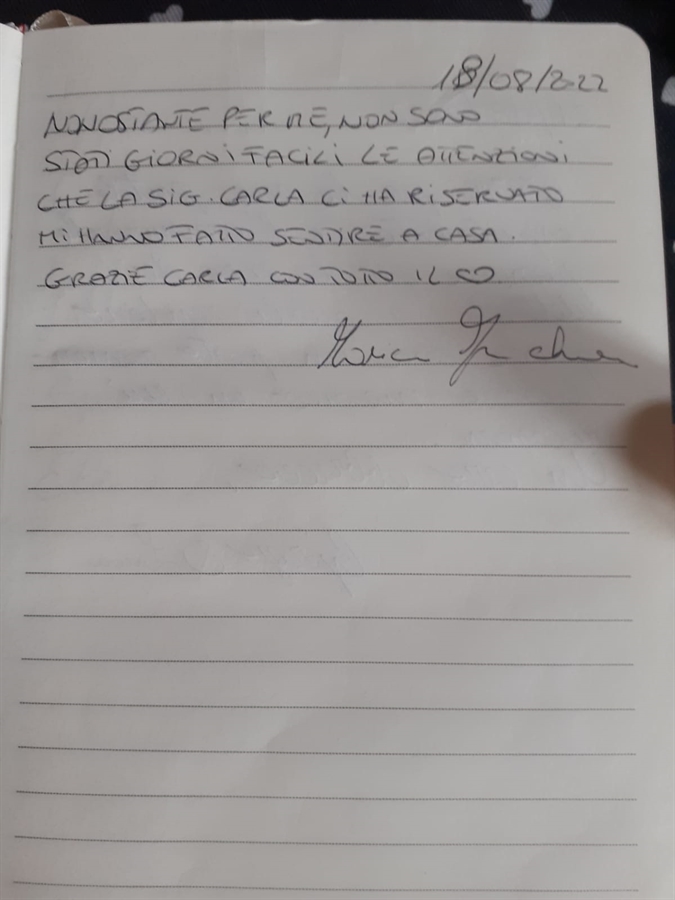 18/08/2022
NONOSTANTE PER ME, NON SONO
STATI GIORNI FACILI LE ATTENZIONI
CHE LA SIG. CARLA CI HA RISERVATO
MI HANNO FATTO SENTIRE A CASA.
GRAZIE CARLA CON TUTTO IL ♡